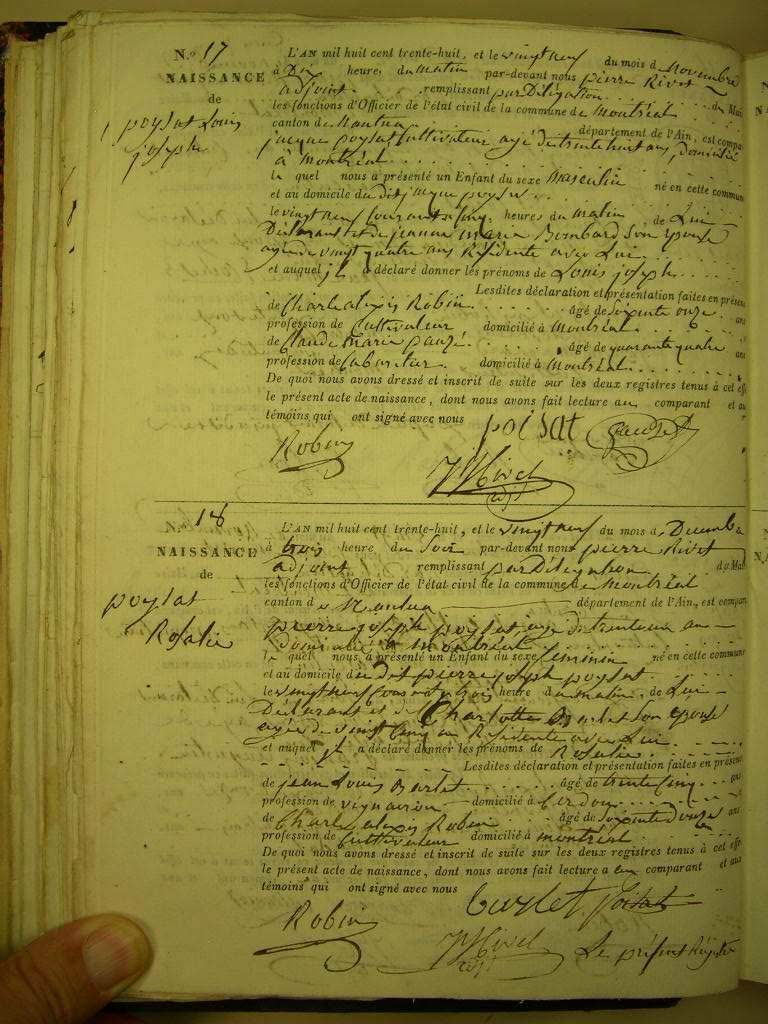 N.o 17
NAISSANCE
de
poysat Louis
joseph
L'AN mil huit cent trente-huit, et le vingt neuf du mois de Novembre
à Dix heure, du matin par-devant nous pierre Rivet
adjoint remplissant par Délégation du Mai
les fonctions d'Officier de l'état civil de la commune de Montréal
canton de Nantua département de l'Ain, est compa
jacque poysat Cultivateur agé de trente huit ans, domicilié
à Montréal
le quel nous a présenté un Enfant du sexe Masculin né en cette commun
et au domicile du dit jacque poysat
le vingt neuf Courant à Cinq heures du matin, de Lui
Déclarant et de jeanne Marie Bombard Son épouse
agée de vingt quatre ans Résidente avec Lui
et auquel il a déclaré donner les prénoms de Louis joseph
Lesdites déclaration et présentation faites en présen
de Charle alexis Robin âgé de soixante onze ans
profession de Cultivateur domicilié à Montréal
de Claude Marie âgé de quarante quatre ans
profession de Cabaretier domicilié à Montréal
De quoi nous avons dressé et inscrit de suite sur les deux registres tenus à cet eff
le présent acte de naissance, dont nous avons fait lecture au comparant et au
témoins qui ont signé avec nous
poisat
Robin
Rivet
adjt
N.o 18
NAISSANCE
de
poysat
Rosalie
L'AN mil huit cent trente-huit, et le vingt neuf du mois de Décembre
à trois heure du Soir par-devant nous pierre Rivet
adjoint remplissant par Délégation du Mai
les fonctions d'Officier de l'état civil de la commune de Montréal
canton de Nantua département de l'Ain, est compar
pierre joseph poysat, agé de trente un an
domicilié à Montréal
le quel nous a présenté un Enfant du sexe féminin né en cette commune
et au domicile du dit pierre joseph poysat
le vingt neuf Courant à trois heure du matin, de Lui
Déclarant et de Charlotte Barlet Son épouse
agée de vingt Cinq an Résidente avec Lui
et auquel il a déclaré donner les prénoms de Rosalie
Lesdites déclaration et présentation faites en présen
de jean Louis Barlet âgé de trente Cinq ans
profession de vigneron domicilié à Cerdon
de Charle alexis Robin âgé de soixante Douze ans
profession de Cultivateur domicilié à Montréal
De quoi nous avons dressé et inscrit de suite sur les deux registres tenus à cet effe
le présent acte de naissance, dont nous avons fait lecture a au comparant et aux
témoins qui ont signé avec nous
Barlet Poisat
Robin
Rivet
adjt
Le présent Régistre